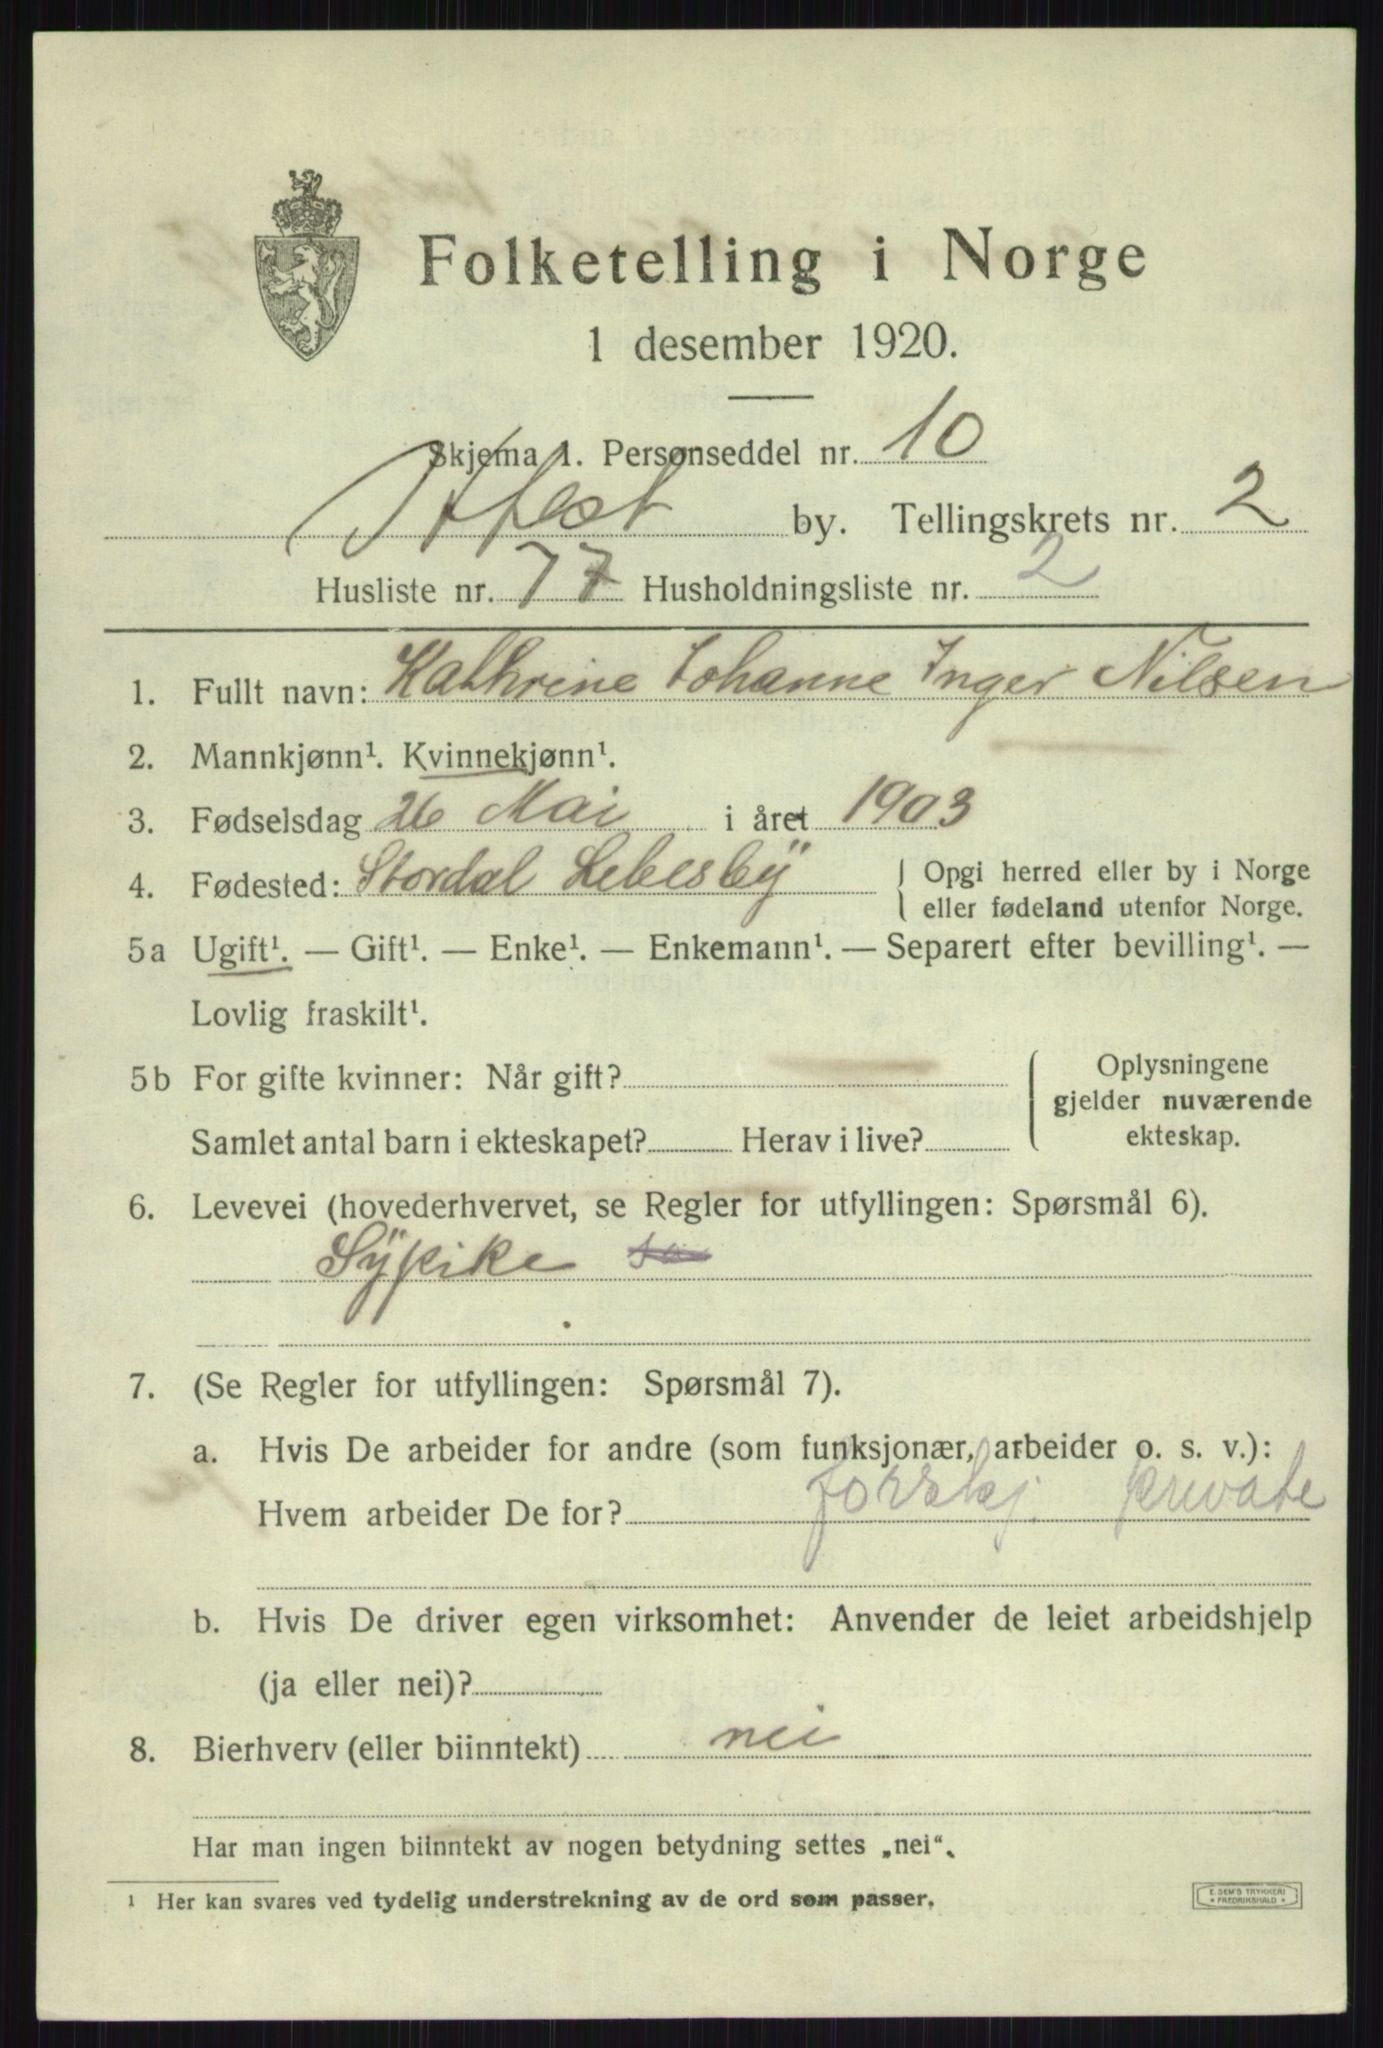 Folketelling i Norge
1 desember 1920.
Skjema 1. Personseddel nr. 10
by. Tellingskrets nr. 2
Husliste nr. 77 Husholdningsliste nr. 2
1. Fullt navn: Kathrine Johanne Inger Nilsen
2. Mannkjønn¹. Kvinnekjønn¹.
3. Fødselsdag 26 Mai i året 1903
4. Fødested: Stordal Lebesby
{ Opgi herred eller by i Norge
eller fødeland utenfor Norge.
5a Ugift¹. — Gift¹. — Enke¹. — Enkemann¹. — Separert efter bevilling¹. —
Lovlig fraskilt¹.
5b For gifte kvinner: Når gift?
Samlet antal barn i ekteskapet? Herav i live?
{ Oplysningene
gjelder nuværende
ekteskap.
6. Levevei (hovederhvervet, se Regler for utfyllingen: Spørsmål 6).
Sÿpike
7. (Se Regler for utfyllingen: Spørsmål 7).
a. Hvis De arbeider for andre (som funksjonær, arbeider o. s. v.):
Hvem arbeider De for? forskj. private
b. Hvis De driver egen virksomhet: Anvender de leiet arbeidshjelp
(ja eller nei)?
8. Bierhverv (eller biinntekt) nei
Har man ingen biinntekt av nogen betydning settes „nei“.
¹ Her kan svares ved tydelig understrekning av de ord som passer.
E. SEM'S TRYKKERI
• FREDRIKSHALD •